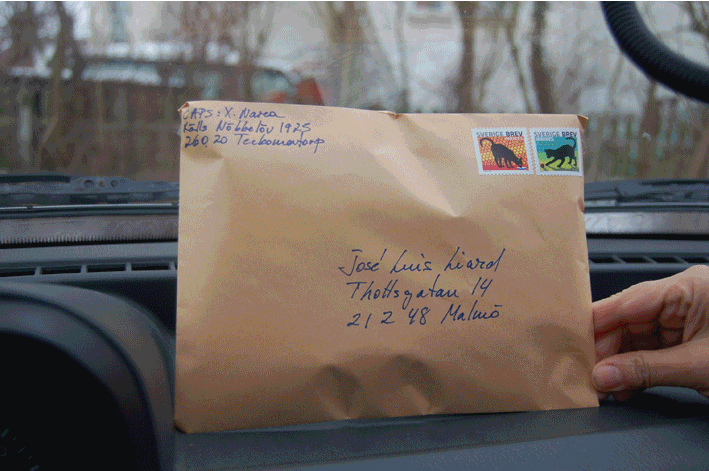 CAPS: X. Narea
Källs Nöbbelöv 1925
260 20 Teckomatorp
SVERIGE BREV
SVERIGE BREV
José Luis Liard
Thottsgatan 14
212 48 Malmö